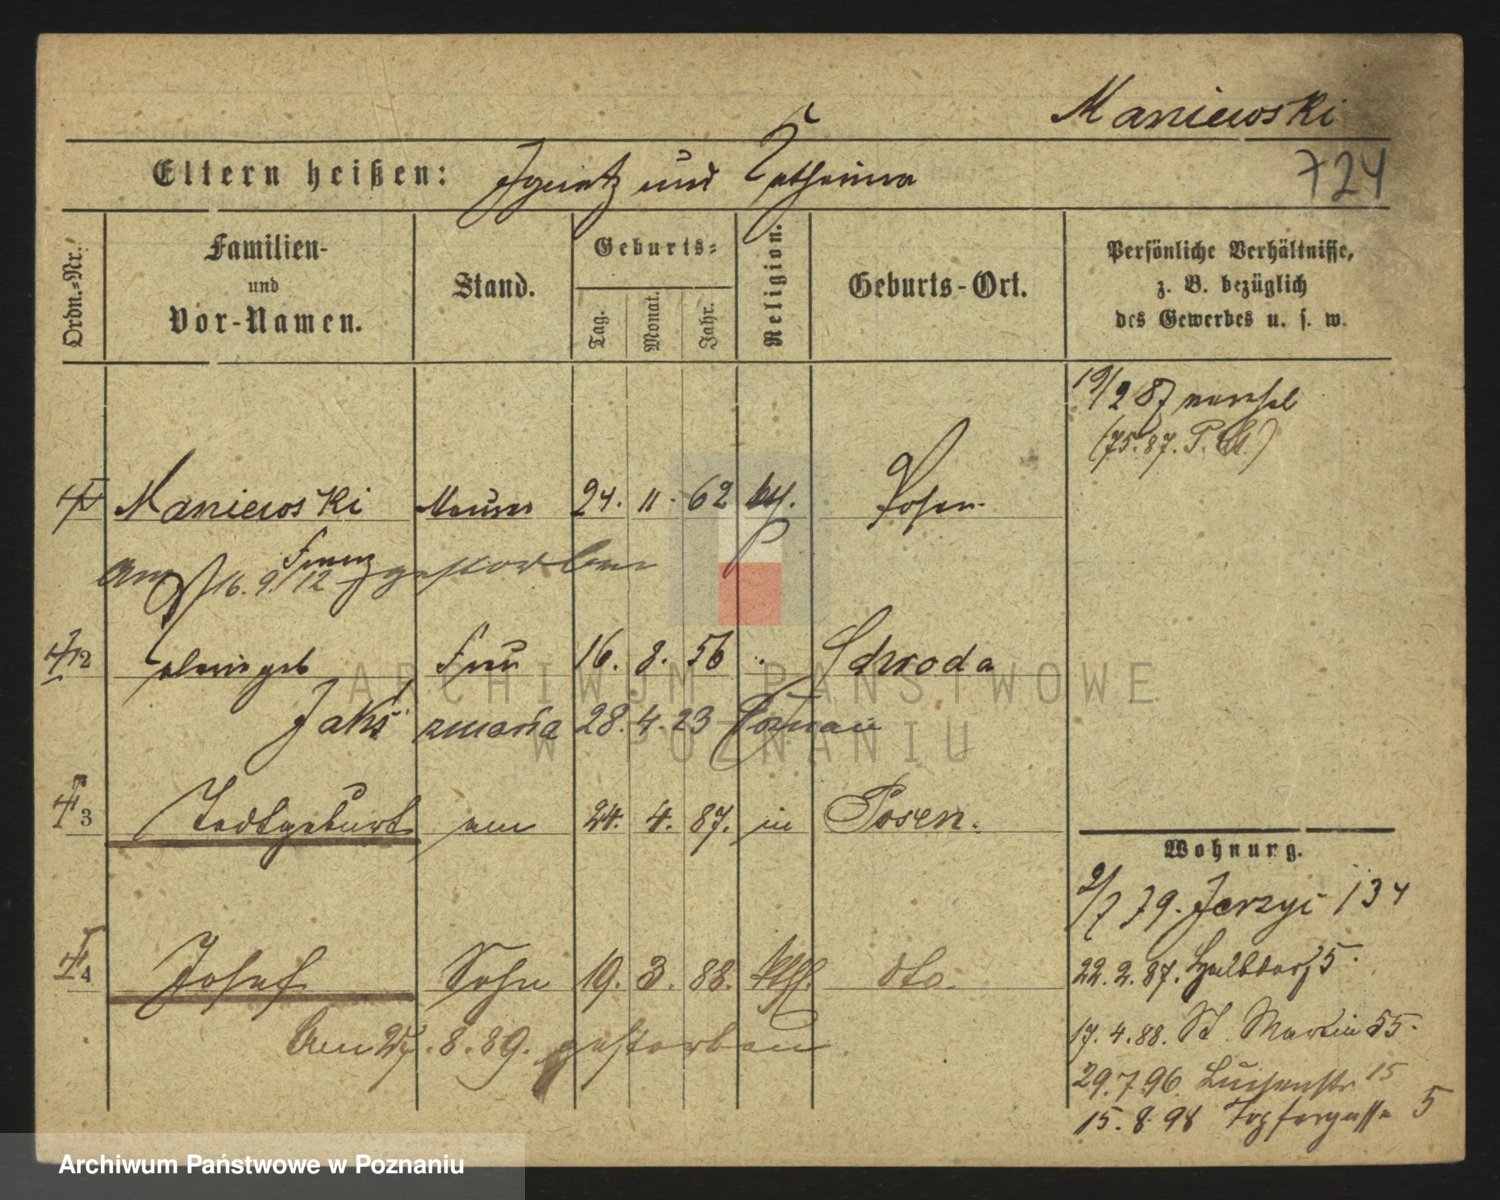 Maniewski
724
Eltern heißen: Ignatz und Catharina
Ordn.-Nr.
Familien-
und
Vor-Namen.
Stand.
Geburts-
Tag.
Monat.
Jahr.
Religion.
Geburts-Ort.
Persönliche Verhältnisse,
z. B. bezüglich
des Gewerbes u. s. w.
19/2 87
(75.87. P. M.)
Maniewski Maurer 24. 11. 62 kth. Posen.
Franz
am 16. 9. 12 gestorben
2 geb Frau 16. 8. 56 " Schroda
Jakś zmarła 28. 4. 23 Poznań
3 Todtgeburt am 24. 4. 87. in Posen.
Wohnung.
2/7 79. Jerzyc 134
4 Josef Sohn 19. 3. 88. kth. dto.
22. 2. 87. Halbdorf 5.
Am 27. 8. 89. gestorben
17. 4. 88. St. Martin 55.
29. 7 96. Luisenstr 15
15. 8. 98 Topfergasse 5
ARCHIWUM PAŃSTWOWE
W POZNANIU
Archiwum Państwowe w Poznaniu